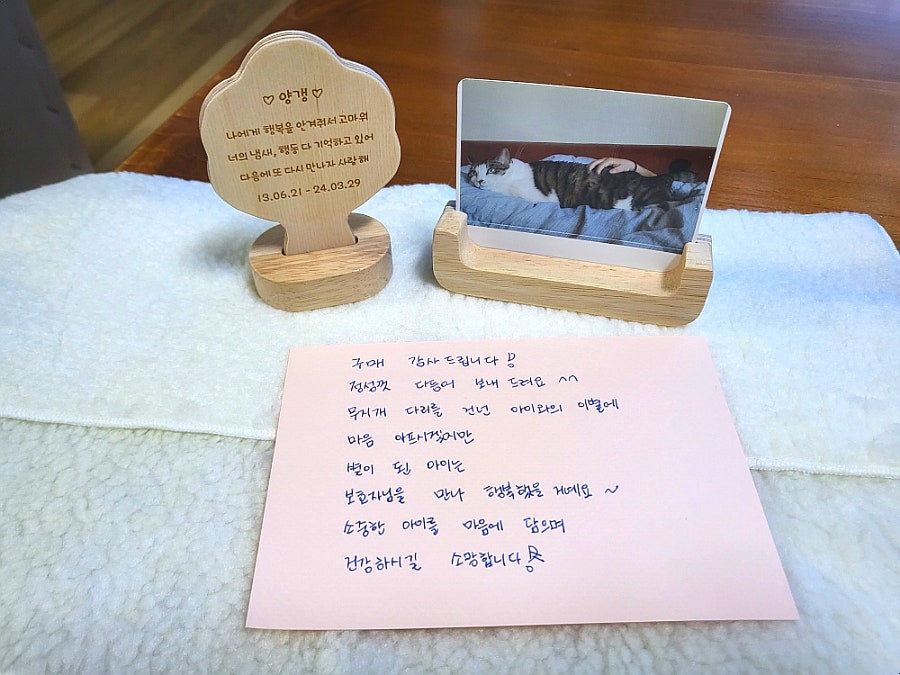 ♡ 양갱 ♡
나에게 행복을 안겨줘서 고마워
너의 냄새, 행동 다 기억하고 있어
다음에 또 다시 만나자 사랑해
13.06.21 - 24.03.29
구매 감사드립니다
정성껏 다듬어 보내 드려요 ^^
무지개 다리를 건넌 아이와의 이별에
마음 아프시겠지만
별이 된 아이는
보호자님을 만나 행복했을 거예요 ~
소중한 아이를 마음에 담으며
건강하시길 소망합니다